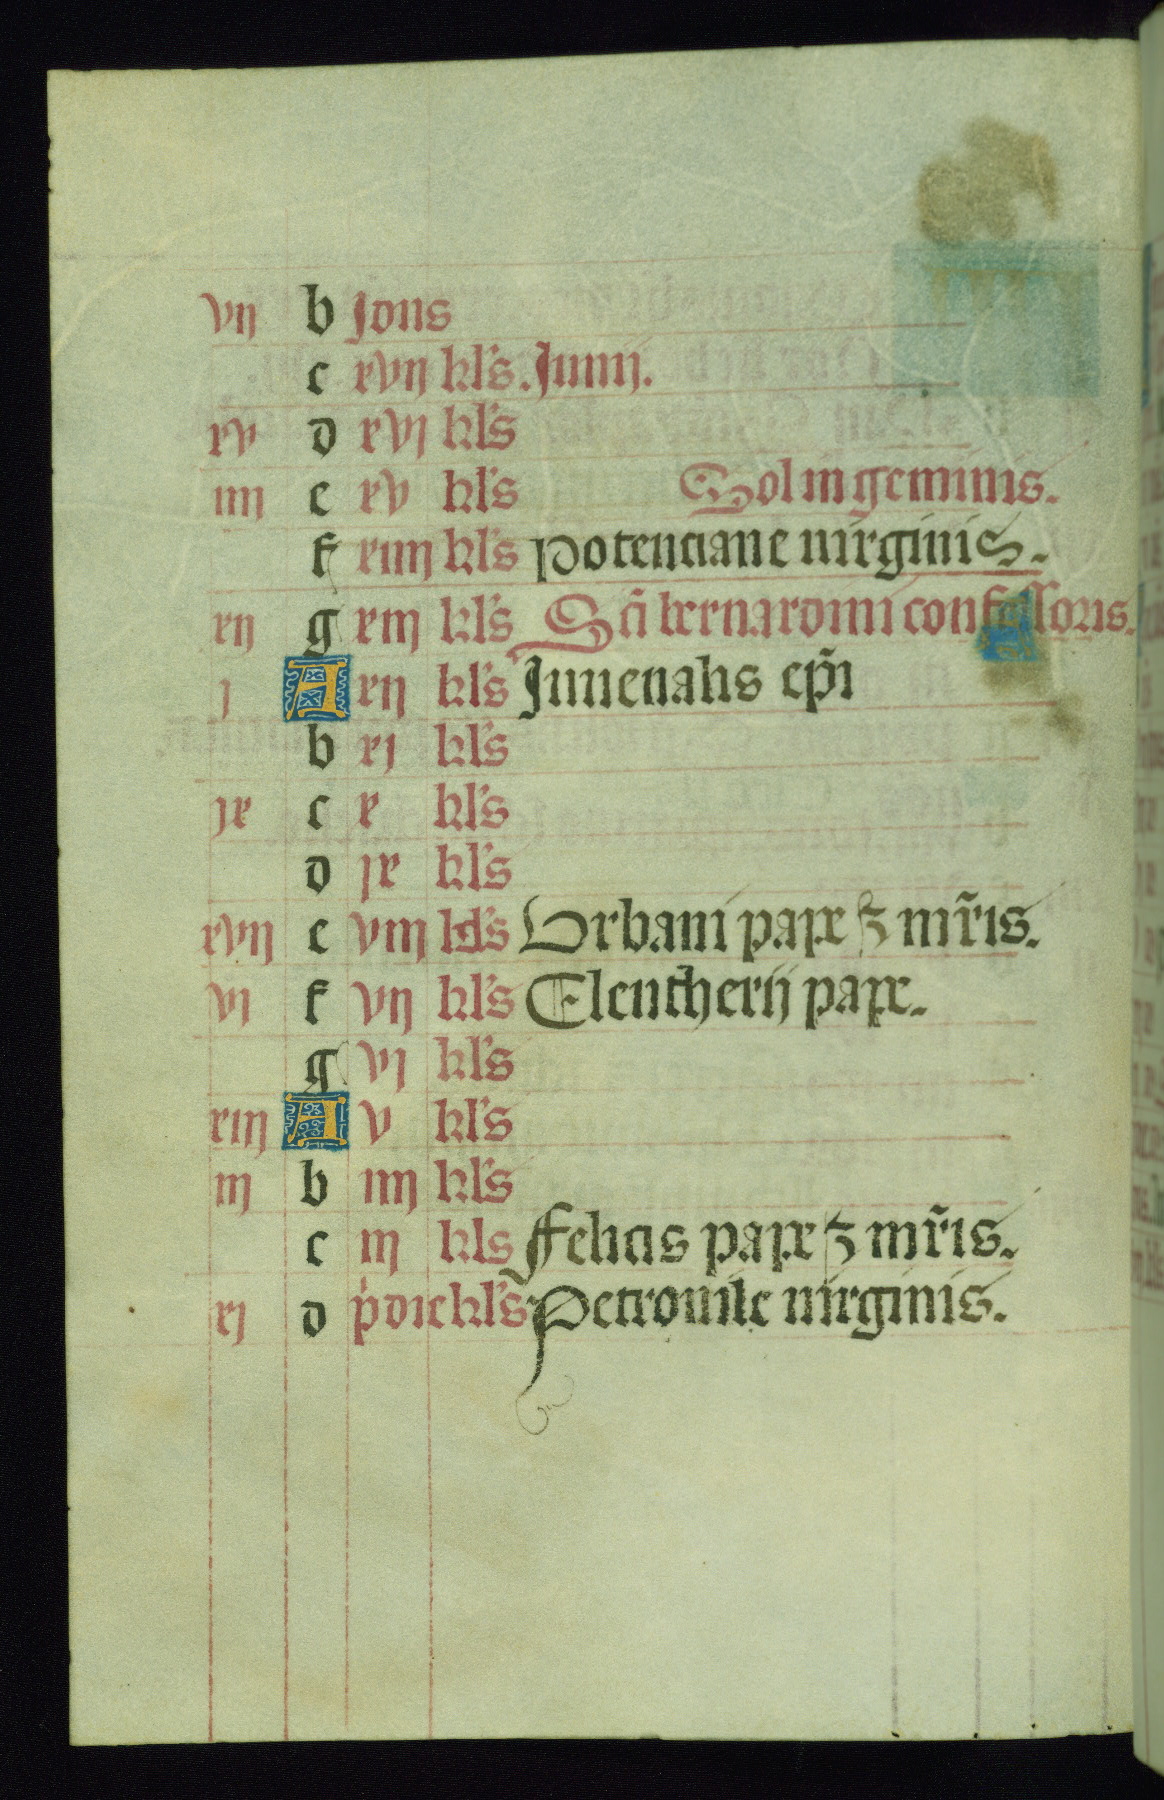 vij b Idus
c xvij kl's. Junij.
xv d xvj kl's
iiij e xv kl's Sol in geminis.
f xiiij kl's potenciane uirginis.
xij g xiij kl's Sci bernardini confessoris.
j A xij kl's Juuenalis epi
b xj kl's
jx c x kl's
d jx kl's
xvij e viij kl's Vrbani pape ⁊ mris.
vj f vij kl's Eleutherij pape.
g vj kl's
xiiij A v kl's
iij b iiij kl's
c iij kls Felicis pape ⁊ mris.
xj d pdie kl's Petronile uirginis.